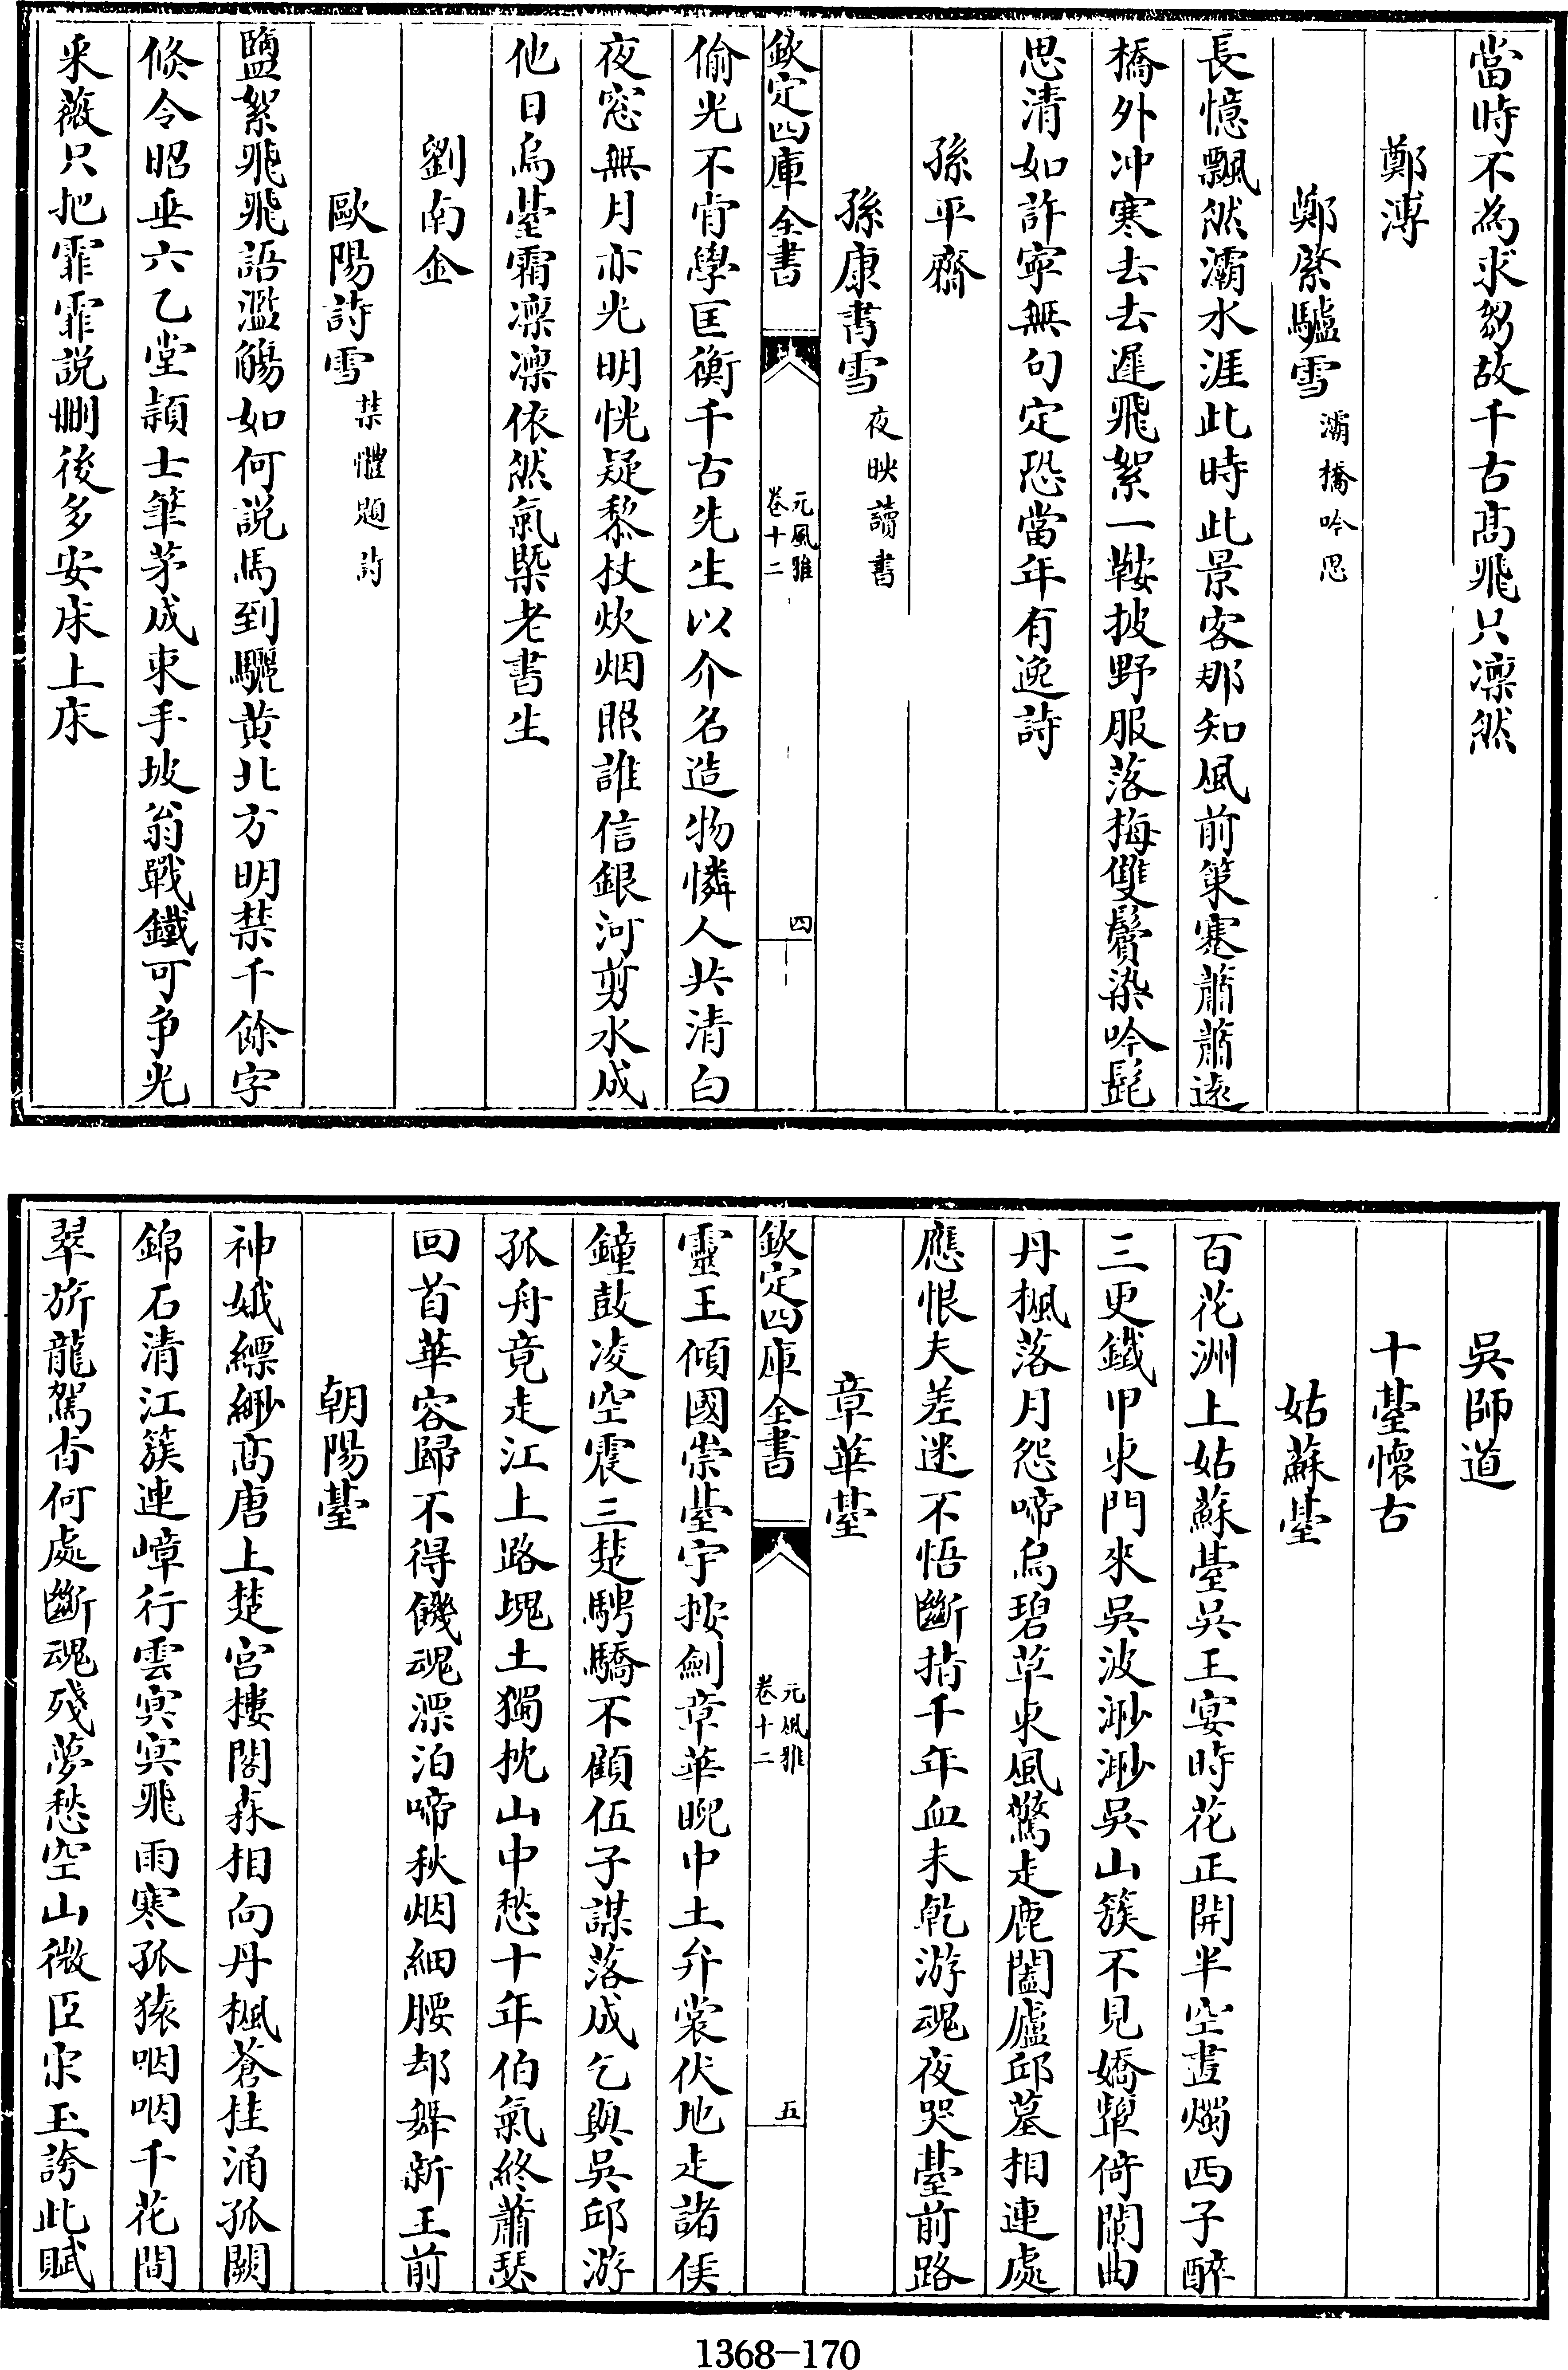 當時不為求芻故千古髙飛只凛然
鄭溥
鄭綮驢雪灞橋吟思
長憶飄然灞水涯此時此景客那知風前策蹇蕭蕭逺
橋外冲寒去去遲飛絮一鞍披野服落梅雙鬢染吟髭
思清如許寧無句定恐當年有逸詩
孫平齋
孫康書雪夜映讀書
欽定四庫全書
元風雅
卷十二
四
偷光不肯學匡衡千古先生以介名造物憐人共清白
夜窓無月亦光明恍疑藜杖炊烟照誰信銀河剪水成
他日烏臺霜凛凛依然氣槩老書生
劉南金
歐陽詩雪禁體題詩
鹽絮飛飛語濫觴如何説馬到驪黄北方明禁千餘字
倏令昭垂六乙堂頴士筆茅成束手坡翁戰鐵可争光
采薇只把霏霏説刪後多安床上床
吳師道
十臺懷古
姑蘇臺
百花洲上姑蘇臺吳王宴時花正開半空畫燭西子醉
三更鐵甲東門來吳波渺渺吳山簇不見嬌顰倚闌曲
丹楓落月怨啼烏碧草東風驚走鹿闔廬邱墓相連處
應恨夫差迷不悟斷指千年血未乾游魂夜哭臺前路
章華臺
欽定四庫全書
元風雅
卷十二
五
靈王傾國崇臺宇按劍章華睨中土弁裳伏地走諸侯
鐘鼓凌空震三楚騁驕不顧伍子謀落成乞與吳邱游
孤舟竟走江上路塊土獨枕山中愁十年伯氣終蕭瑟
回首華容歸不得饑魂漂泊啼秋烟細腰却舞新王前
朝陽臺
神娥縹緲高唐上楚宫樓閣森相向丹楓蒼桂涌孤闕
錦石清江簇連嶂行雲冥冥飛雨寒孤猿咽咽千花間
翠旂龍駕杳何處斷魂殘夢愁空山微臣宋玉誇此賦
1368-170